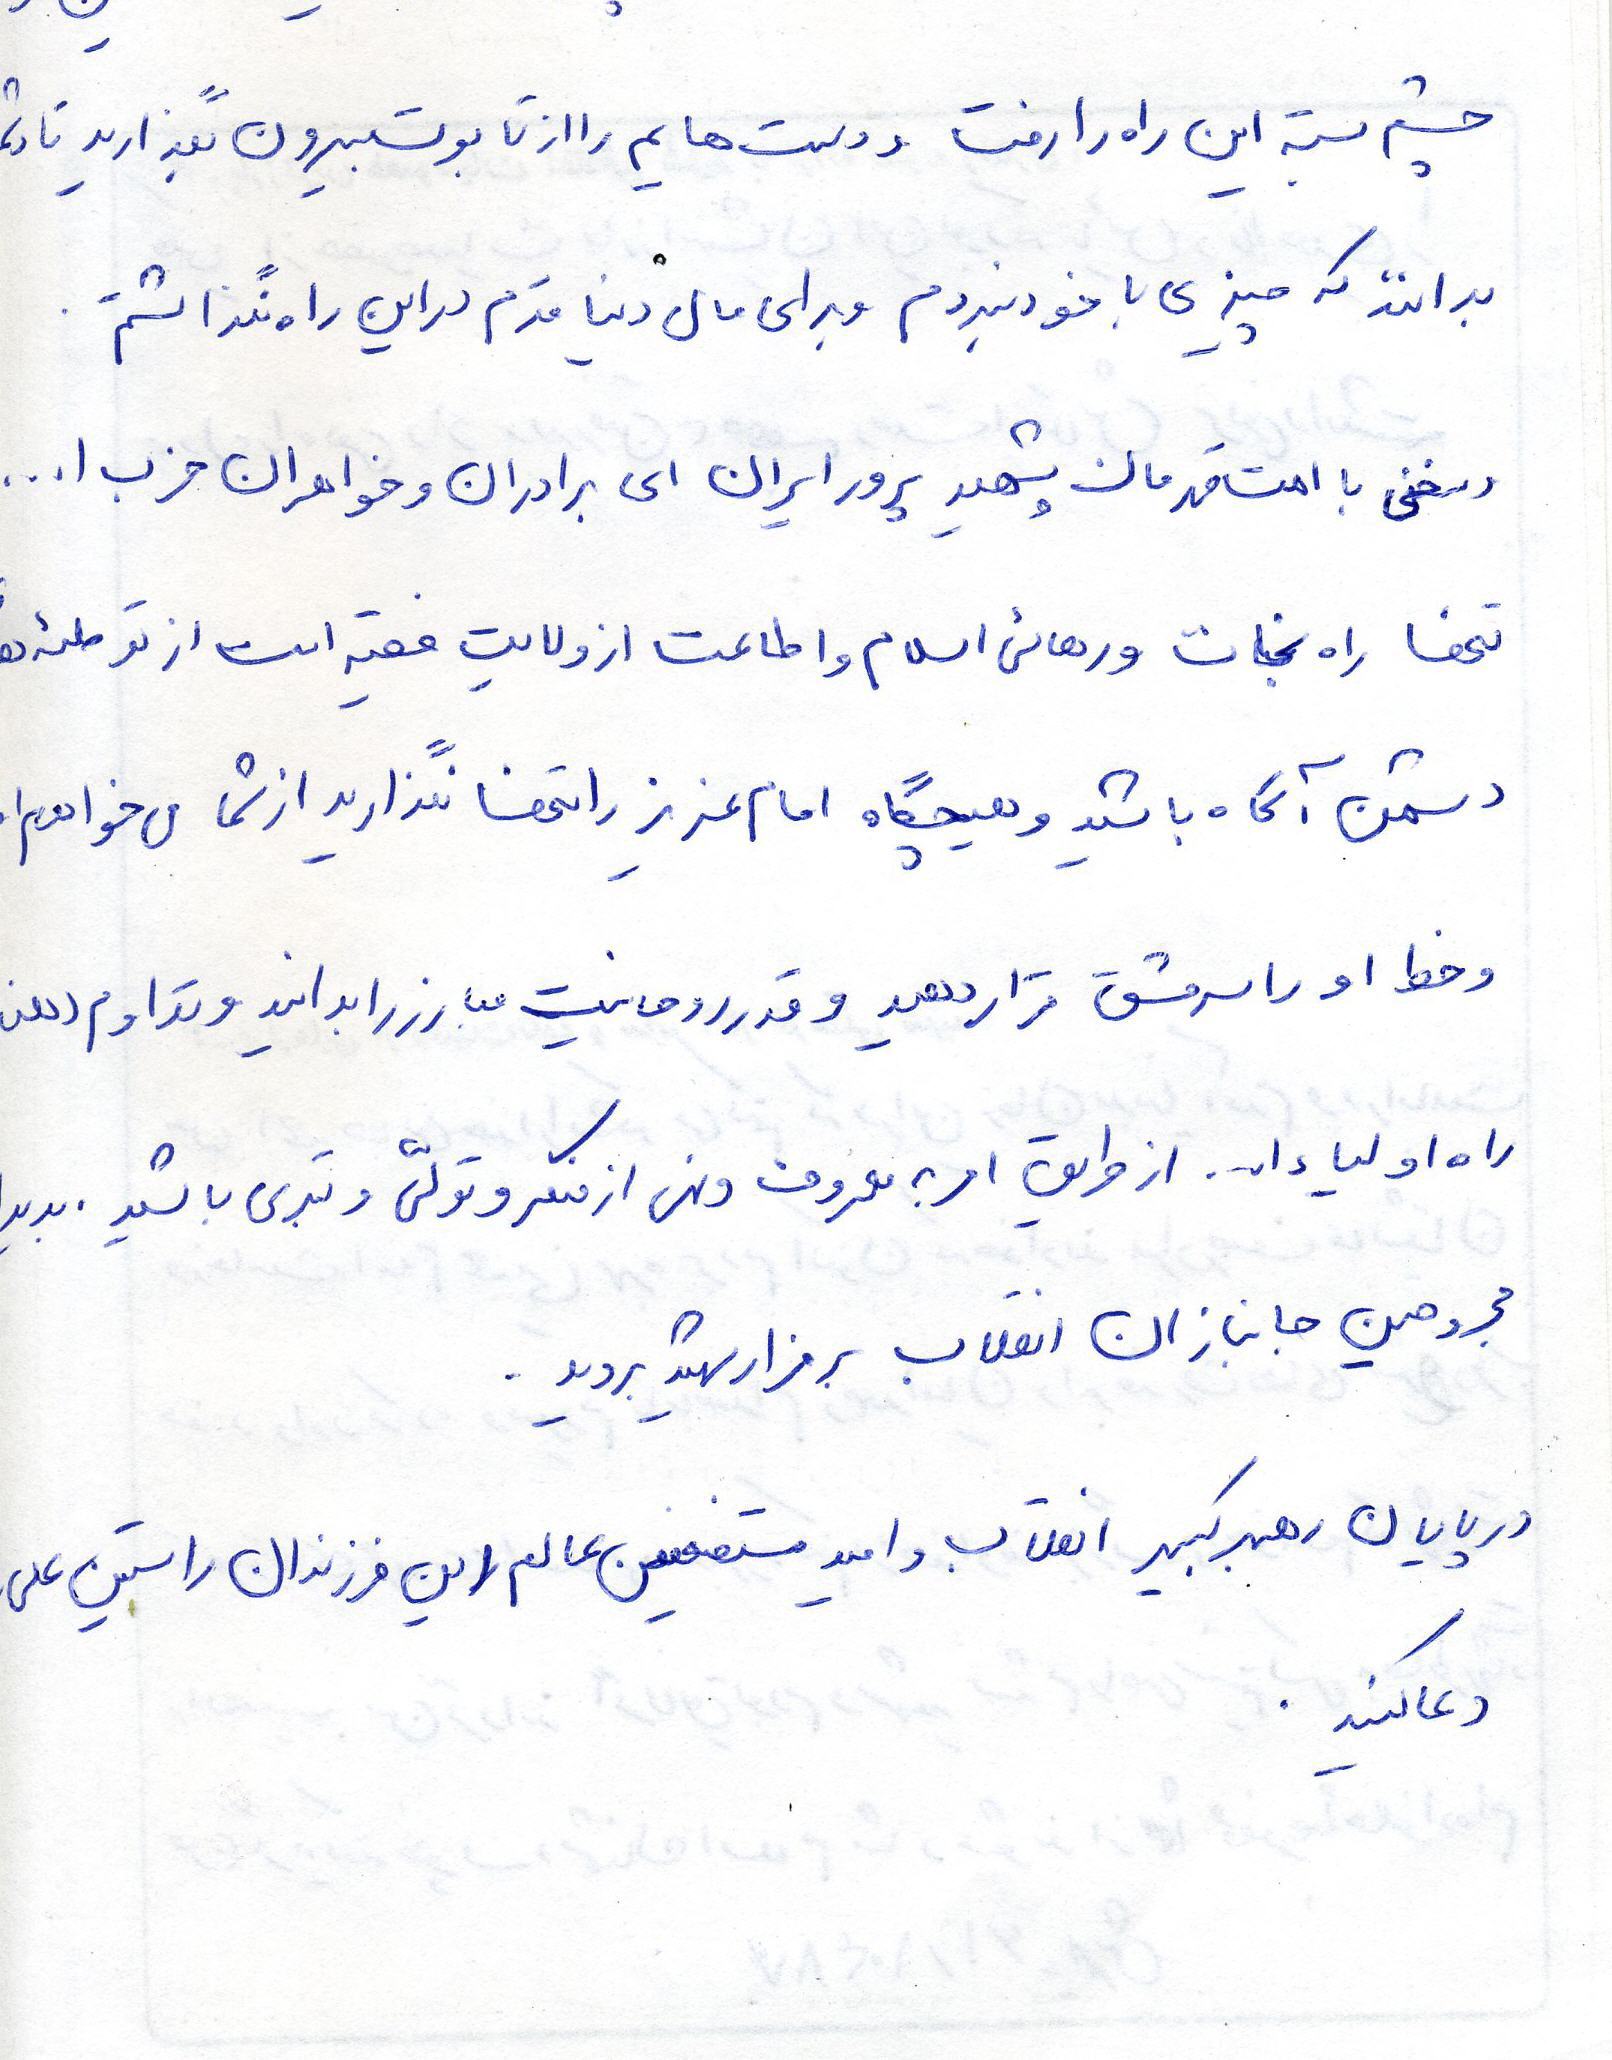 چشم بسته این راه را رفت و دست هایم را از تابوت بیرون بگذارید تا
بدانند که چیزی با خود نبردم و برای مال دنیا قدم در این راه نگذاشتم .
و سخنی با امت قهرمان شهید پرور ایران ای برادران و خواهران حزب ا...
تنها راه نجات و رهائی اسلام و اطاعت از ولایت فقیه است از توطئه
دشمن آگاه باشید و هیچگاه امام عزیز را تنها نگذارید از شما می خواهم
و خط او را سرمشق قرار دهید و قدر روحانیت مبارز را بدانید و تداوم
راه اولیاء ا... از طریق امر به معروف و نهی از منکر و تولّی و تبری باشید .
مجروحین جانبازان انقلاب بر مزار شهدا بروید .
در پایان رهبر کبیر انقلاب و امید مستضعفین عالم این فرزندان راستین علی
دعا کنید .